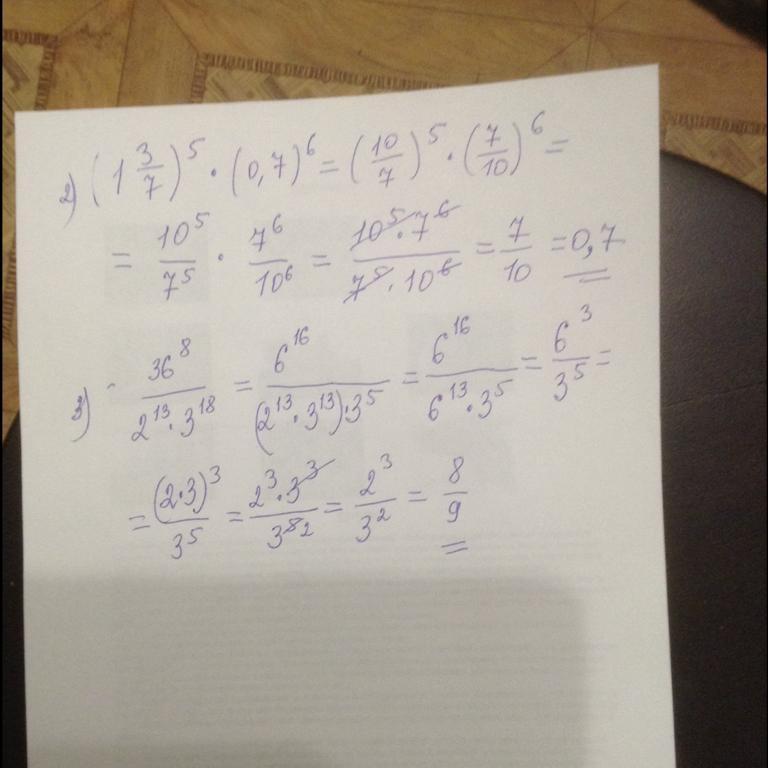 2) (1 3/7)^5 · (0,7)^6 = (10/7)^5 · (7/10)^6 =
= 10^5/7^5 · 7^6/10^6 = 10^5·7^6/7^5·10^6 = 7/10 = 0,7
3) 36^8/2^13·3^18 = 6^16/(2^13·3^13)·3^5 = 6^16/6^13·3^5 = 6^3/3^5 =
= (2·3)^3/3^5 = 2^3·3^3/3^5 2 = 2^3/3^2 = 8/9